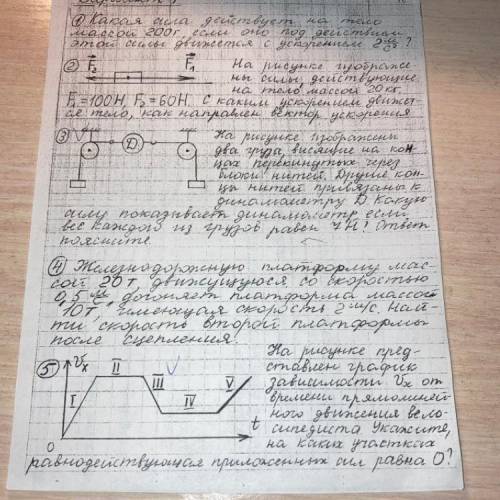 ① Какая сила действует на тело
массой 200г, если оно под действием
этой силы движется с ускорением 2 м/с²?
② F₂ F₁ На рисунке изображе-
ны силы, действующие
на тело массой 20 кг.
F₁=100Н, F₂=60Н. С каким ускорением движет-
ся тело, как направлен вектор ускорения
③ На рисунке изображены
два груза, висящие на кон-
цах перекинутых через
блоки нитей. Другие кон-
цы нитей привязаны к
Д
динамометру Д. Какую
силу показывает динамометр если
вес каждого из грузов равен 7Н? Ответ
поясните.
④ Железнодорожную платформу мас-
сой 20 т, движущуюся со скоростью
0,5 м/с догоняет платформа массой
10т, имеющая скорость 2 м/с. Най-
ти скорость второй платформы
после сцепления.
⑤ Vx На рисунке пред-
I II III IV V
ставлен график
зависимости Vx от
времени прямолиней-
ного движения вело-
0 t
сипедиста Укажите,
на каких участках
равнодействующая приложенных сил равна 0?